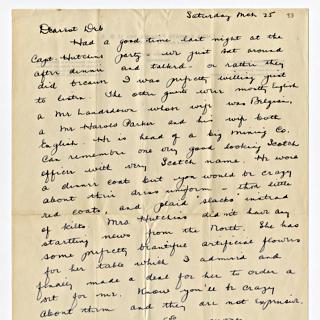 Saturday Mch 25 93
Dearest Deb
Had a good time last night at the
Capt. Hutchins party - we just sat around
after dinner and talked - or rather they
did because I was perfectly willing just
to listen. The other guests were mostly English
a Mr Landsdown whose wife was Belgian,
a Mr Harold Parker and his wife both
English - He is head of a big Mining Co.
Can remember one very good looking Scotch
officer with very Scotch name. He wore
a dinner coat but you would be crazy
about their dress uniform - that little
red coats, and plaid "slacks" instead
of kilts. Mrs Hutchins didn't have any
startling news from the North. She has
some perfectly beautiful artificial flowers
for her table which I admired and
finally made a deal for her to order a
set for me. Know you'll be crazy
about them and they are not expensive.